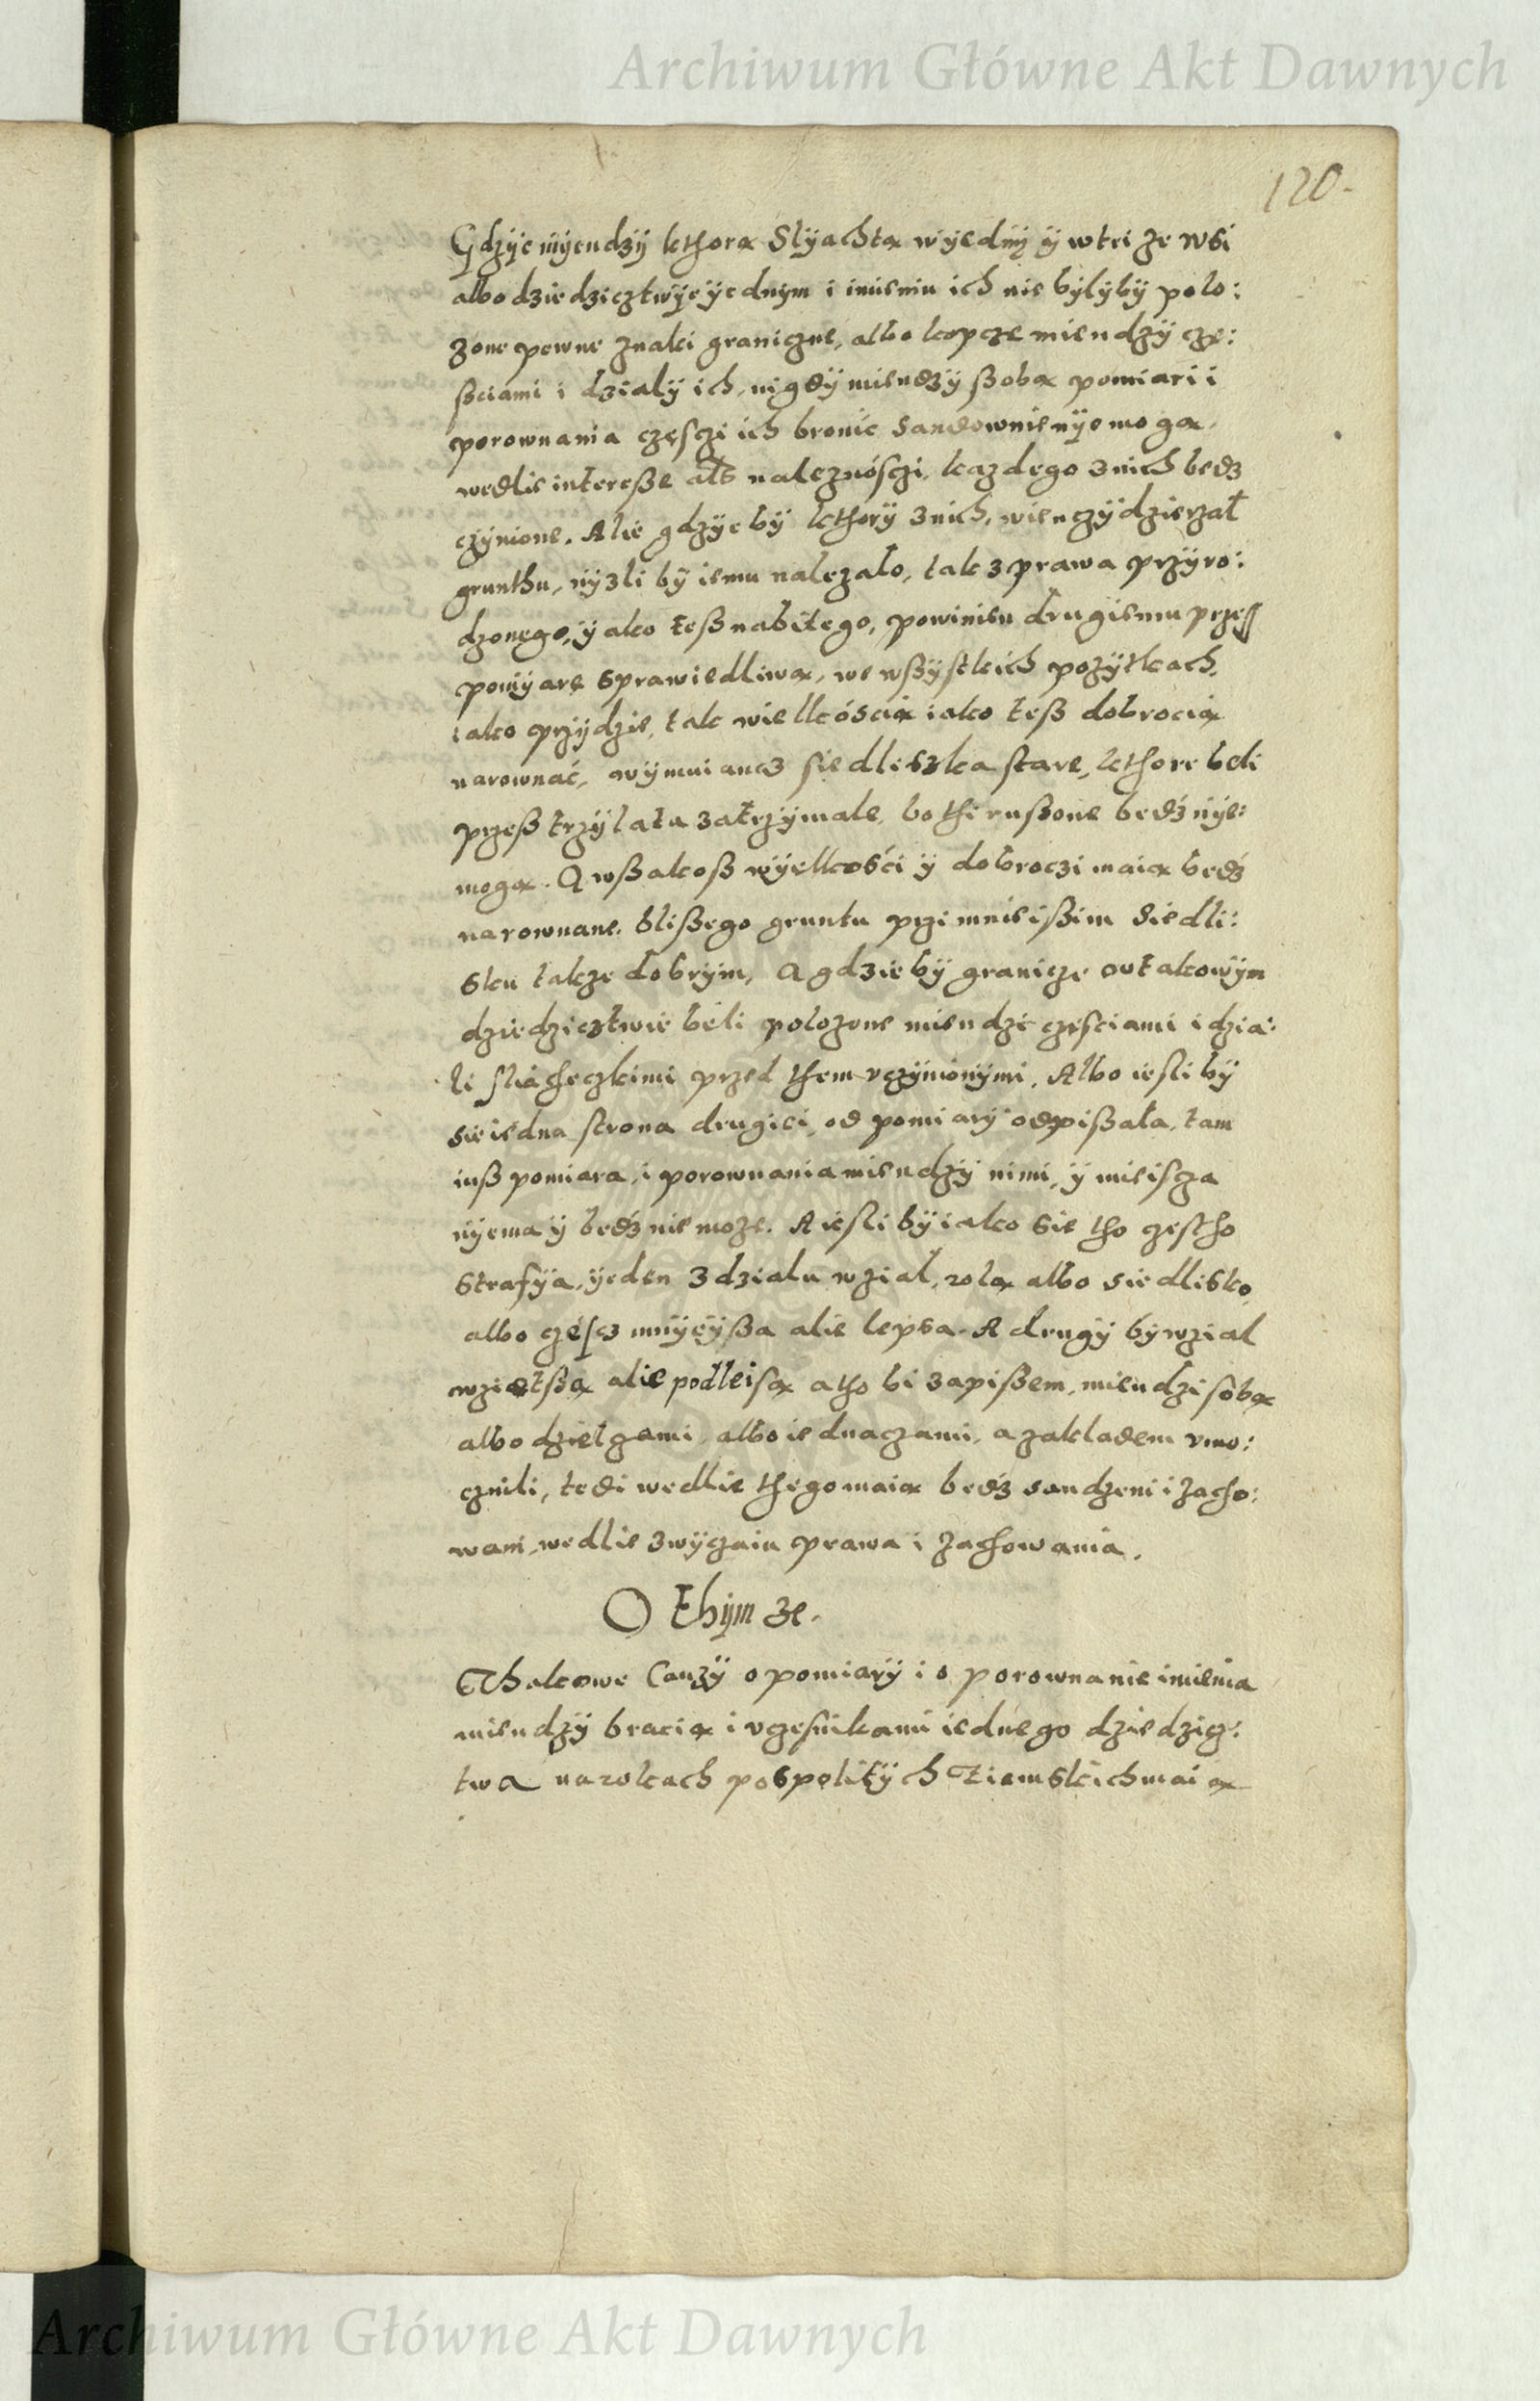 Archiwum Główne Akt Dawnych
120.
Gdzÿe mÿendzÿ kthorą Slÿachtą wÿednÿ ÿ wtei ze wsi
albo dziedzicztwÿe ÿednÿm i imieniu ich nie bÿlÿbÿ polo:
zone pewne znaki graniczne, albo kopcze miendzÿ czę:
ßciami i dzialÿ ich, nigdÿ miendzÿ ßobą pomiari i
porownania częsczi ich bronic sandownie nÿe mogą,
wedlie intereße alb naleznósczi kazdego z nich bedz
czÿnione. Alie gdzÿe bÿ kthorÿ z nich, wienczÿ dzierzał
grunthu, nÿzli bÿ iemu nalezało, tak z prawa przÿro:
dzonego, ÿ ako teß nabitego, powinien drugiemu przeß
pomÿarę sprawiedliwą, we wßÿstkich pozÿtkach,
iako przÿdzie, tak wielkóscią iako teß dobrocią
narownać, wÿmuiancz siedliszka stare, kthore beli
przeß trzÿ lata zatrzÿmale, bo thi rußone bedz nÿe:
mogą. A wßakoß wÿelkości ÿ dobroczi maią bedz
narownane, blißego gruntu przi mnieißim siedli:
sku takze dobrÿm, A gdzie bÿ granicze w takowÿm
dziedzicztwie beli polozone miendzi częsciami i dzia:
li sliacheczkimi przed them vczÿnionÿmi, Albo iesli bÿ
sie iedna strona drugiei, od pomiarÿ odpißała, tam
iuß pomiara, i porownania miendzÿ nimi, ÿ mieiscza
nÿema ÿ bedz nie moze. A iesli bÿ iako sie tho czestho
strafÿa, ÿeden z dzialu wzial, rolą albo siedlisko,
albo częscz mnÿeÿßa alie lepsa. A drugÿ bÿ wzial
wzietßą alie podleisą a tho bi zapißem, miendzi sobą
albo dzielczami, albo iednaczami, a zakladem vmo:
cznili, tedi wedlie thego maią bedz sandzeni i zacho:
wani, wedlie zwÿczaiu prawa i zachowania.
O thÿm ze.
Thakowe Cauzÿ o pomiarÿ i o porownanie imienia
miendzÿ bracią i vczesnikami iednego dziedzicz:
twa na rokach pospolitÿch Ziemskich maią
Archiwum Główne Akt Dawnych